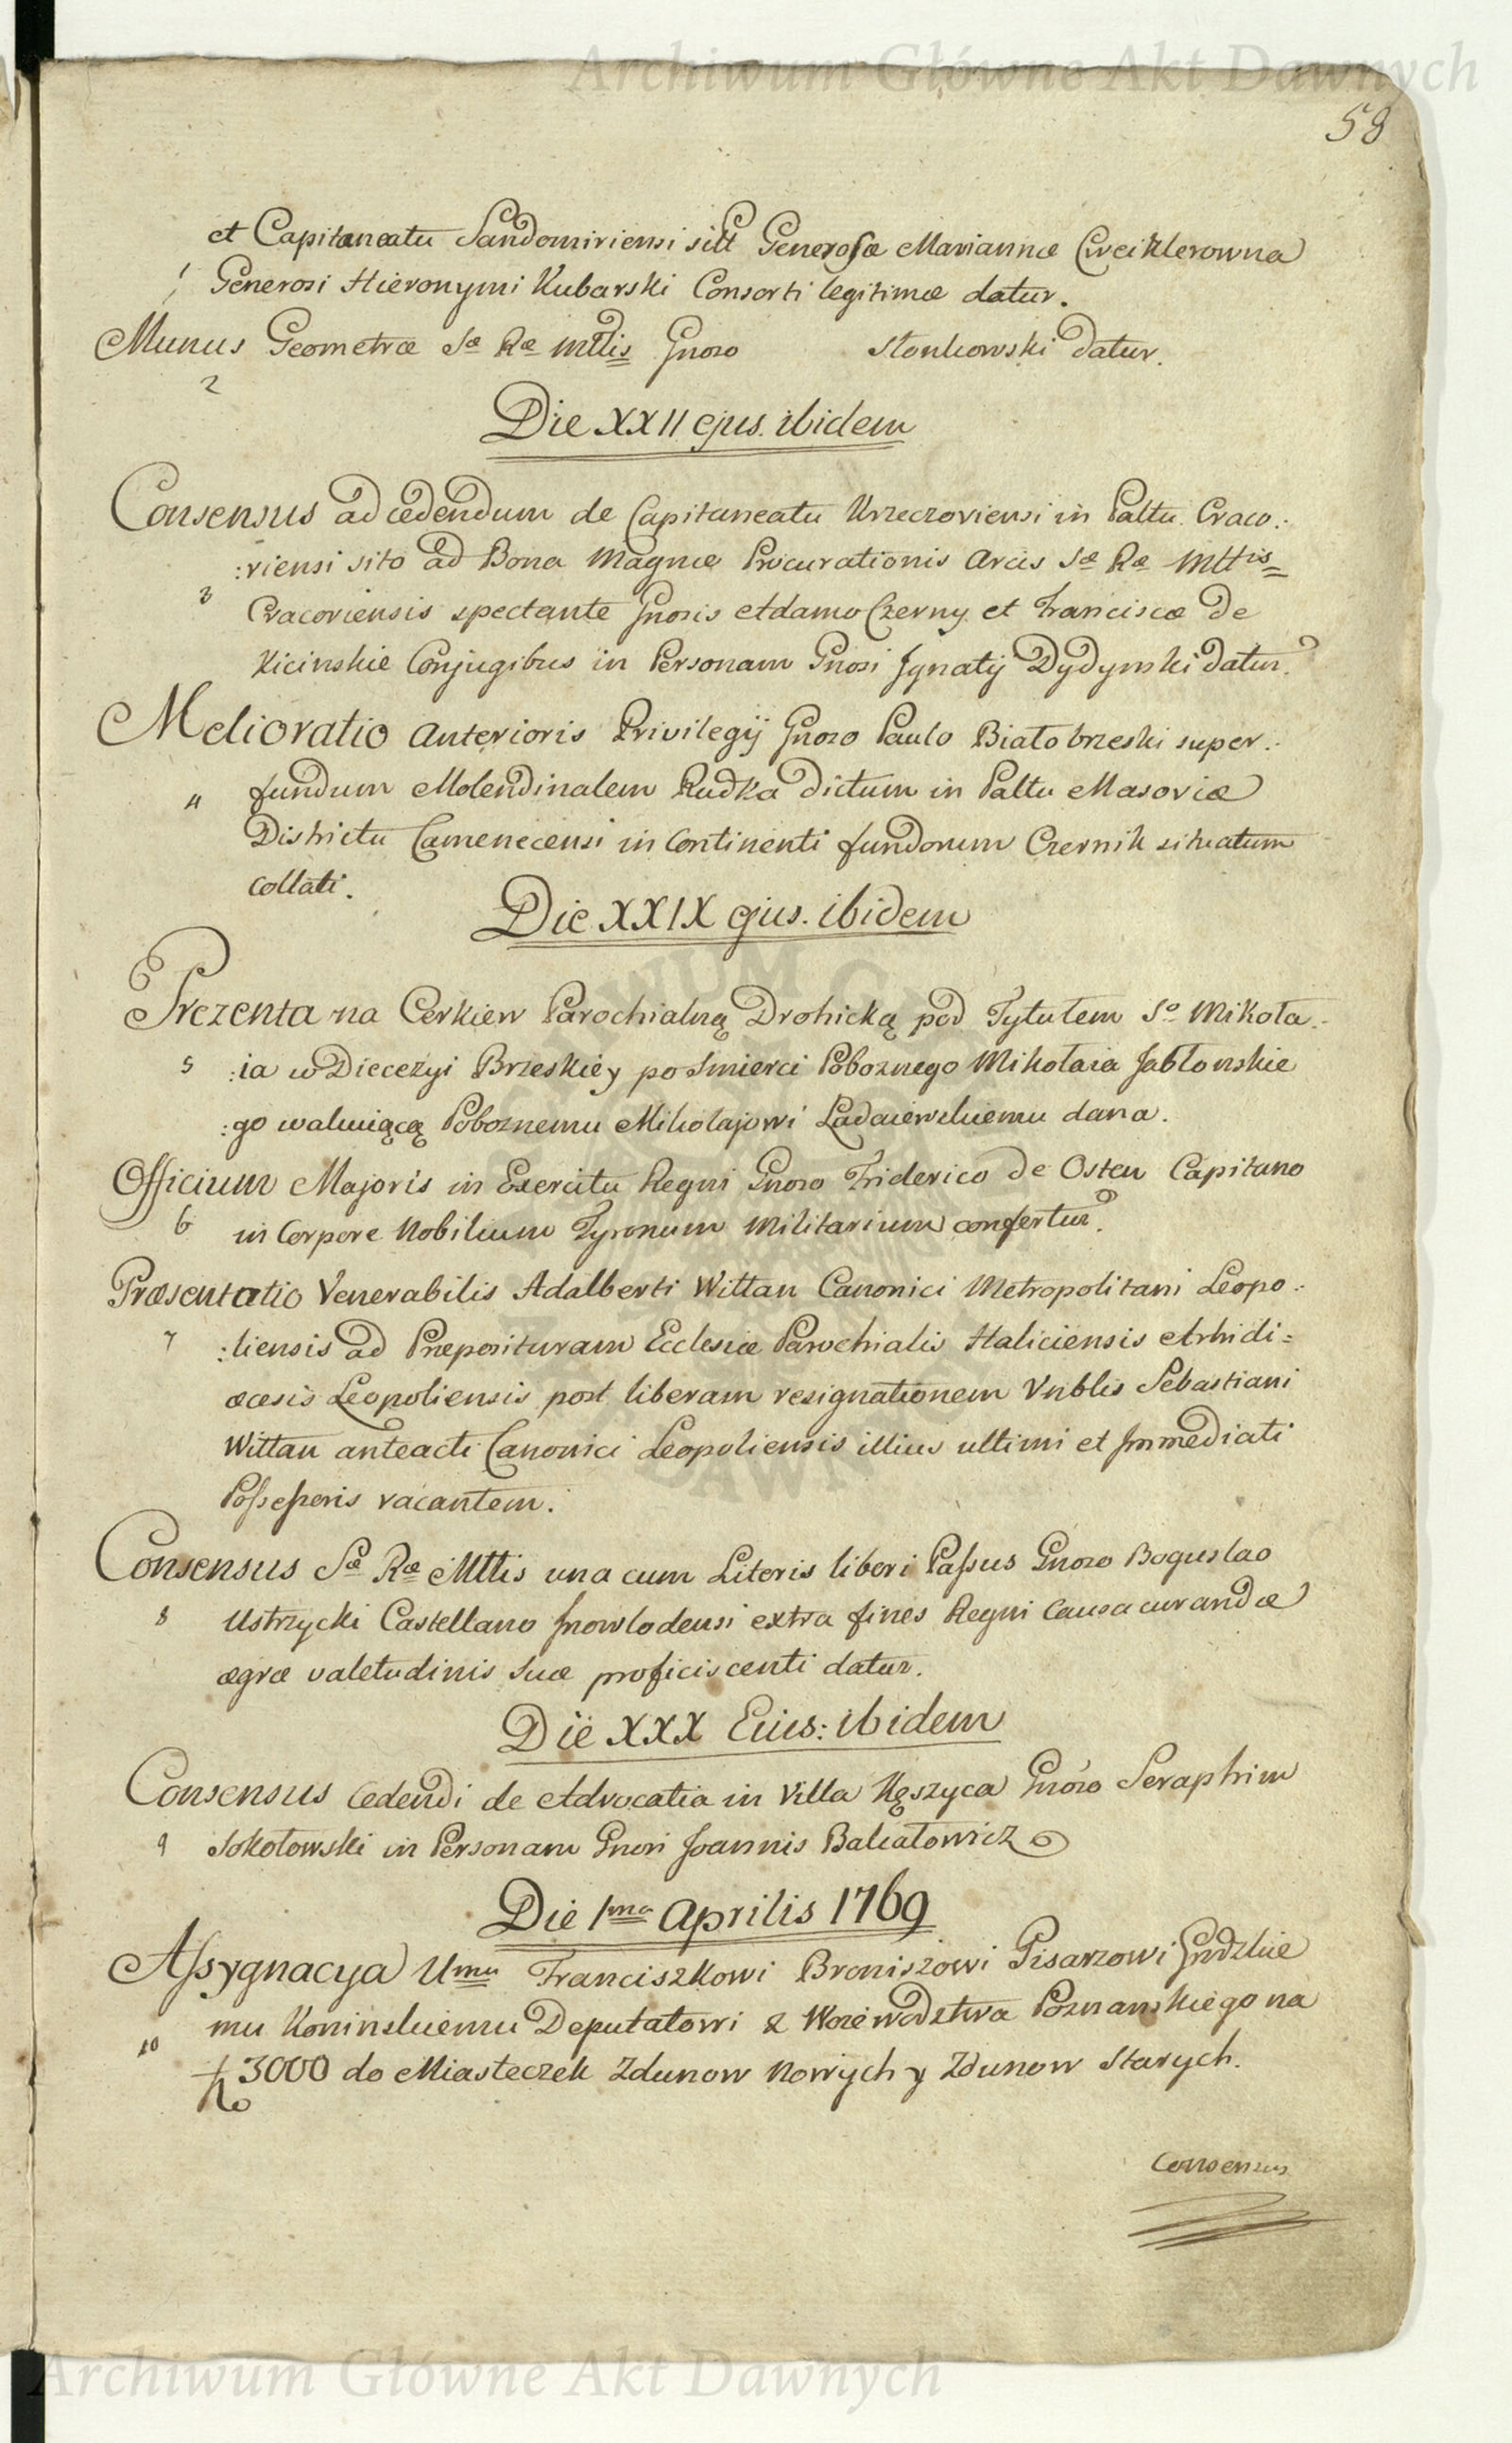 Archiwum Główne Akt Dawnych
58
et Capitaneatu Sandomiriensi sitt Generosæ Mariannæ Cweiklerowna
1 Generosi Hieronymi Kubarski Consorti legitimæ datur.
Munus Geometræ Sæ Ræ Mttis Gnoso Stonkowski datur.
2
Die XXII ejus. ibidem
Consensus ad cedendum de Capitaneatu Urzeczoviensi in Paltu Craco:
:viensi sito ad Bona Magnæ Procurationis Arcis Sæ Ræ Mttis
3 Cracoviensis spectante Gnosis Adamo Czerny et Franciscæ De
Kicinskie Conjugibus in Personam Gnosi Ignatij Dydynski datur.
Melioratio anterioris Privilegij Gnoso Paulo Białobrzeski super:
4 fundum Molendinalem Rudka dictum in Paltu Masoviæ
Districtu Camenecensi in Continenti fundorum Czernik situatum
collati.
Die XXIX ejus. ibidem
Prezenta na Cerkiew Parochialną Drohicką pod Tytułem So Mikoła:
5 :ia w Diecezyi Brzeskiey po Smierci Poboznego Mikołaia Jabłonskie
:go walniącą Poboznemu Mikołajowi Ładaiewskiemu dana.
Officium Majoris in Exercitu Regni Gnoso Friderico de Osten Capitano
6 in Corpore Nobilium Tyronum Militarium confertur.
Præsentatio Venerabilis Adalberti Wittan Canonici Metropolitani Leopo:
7 :liensis ad Præposituram Ecclesiæ Parochialis Haliciensis Arhidi=
æcesis Leopoliensis post liberam resignationem Vnblis Sebastiani
Wittan anteacti Canonici Leopoliensis illius ultimi et Immediati
Possessoris vacantem.
Consensus Sæ Ræ Mttis una cum Literis liberi Passus Gnoso Boguslao
8 Ustrzycki Castellano Inowlodensi extra fines Regni Causa curandæ
ægræ valetudinis suæ proficiscenti datur.
Die XXX Eius: ibidem
Consensus cedendi de Advocatia in Villa Kęszyca Gnoso Seraphim
9 Sokołowski in Personam Gnosi Joannis Bakałowicz
Die 1ma Aprilis 1769
Assygnacya Umu Franciszkowi Broniszowi Pisarzowi Grodzkie
mu Koninskiemu Deputatowi z Woiewodztwa Poznanskiego na
10 fo 3000 do Miasteczek Zdunow Nowych y Zdunow Starych.
Consensus
Archiwum Główne Akt Dawnych